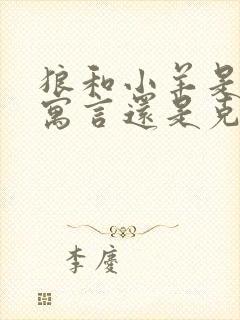 狼和小羊是
寓言還是克
李慶